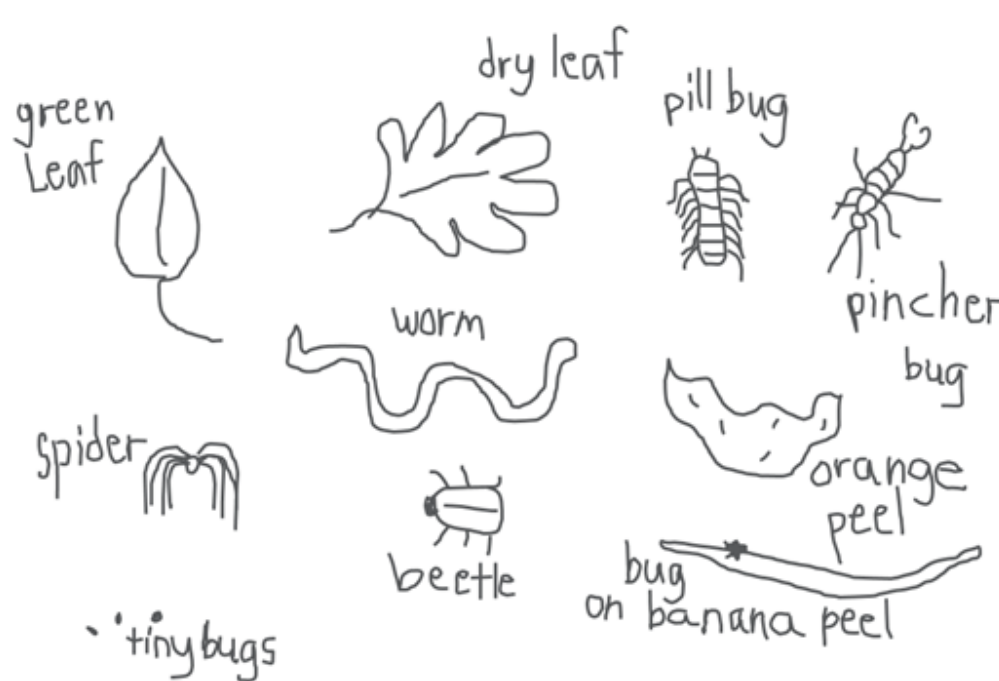 dry leaf
green
Leaf
pill bug
pincher
bug
worm
spider
orange
peel
beetle
bug
on banana peel
tiny bugs